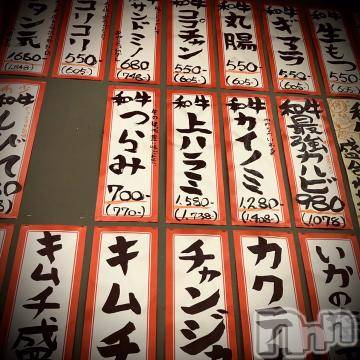 和牛 生もつ
550-
(605)
ギアラ
550-
(605)
和牛 丸腸
550-
(605)
和牛 ココチャン
550-
(605)
サンドミノ
680
(748)
コリコリ
550-
(605)
タン元
和牛 最強カルビ
980
(1078)
和牛 カイノミ
1,280-
(1408-)
和牛 上ハラミ
1,580-
(1,738-)
和牛 つらみ
700-
(770-)
しびて
いかの
カク
チャンジャ
キムチ
キムチ盛